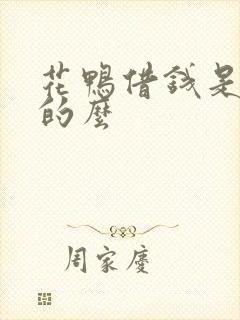 花鸭借钱是
的麼
周家慶